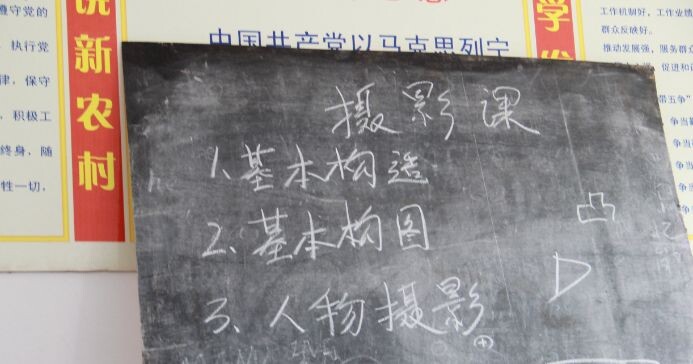 遵守党的
执行党
律，保守
积极工
终身，随
牲一切，
新农村
中国共产党以马克思列宁
学
工作机制好，工作业绩
群众反映好。
推动发展强，服务群众
促进和
带五争"
争当
争当
争当
摄影课
1.基本构造
2、基本构图
3、人物摄影